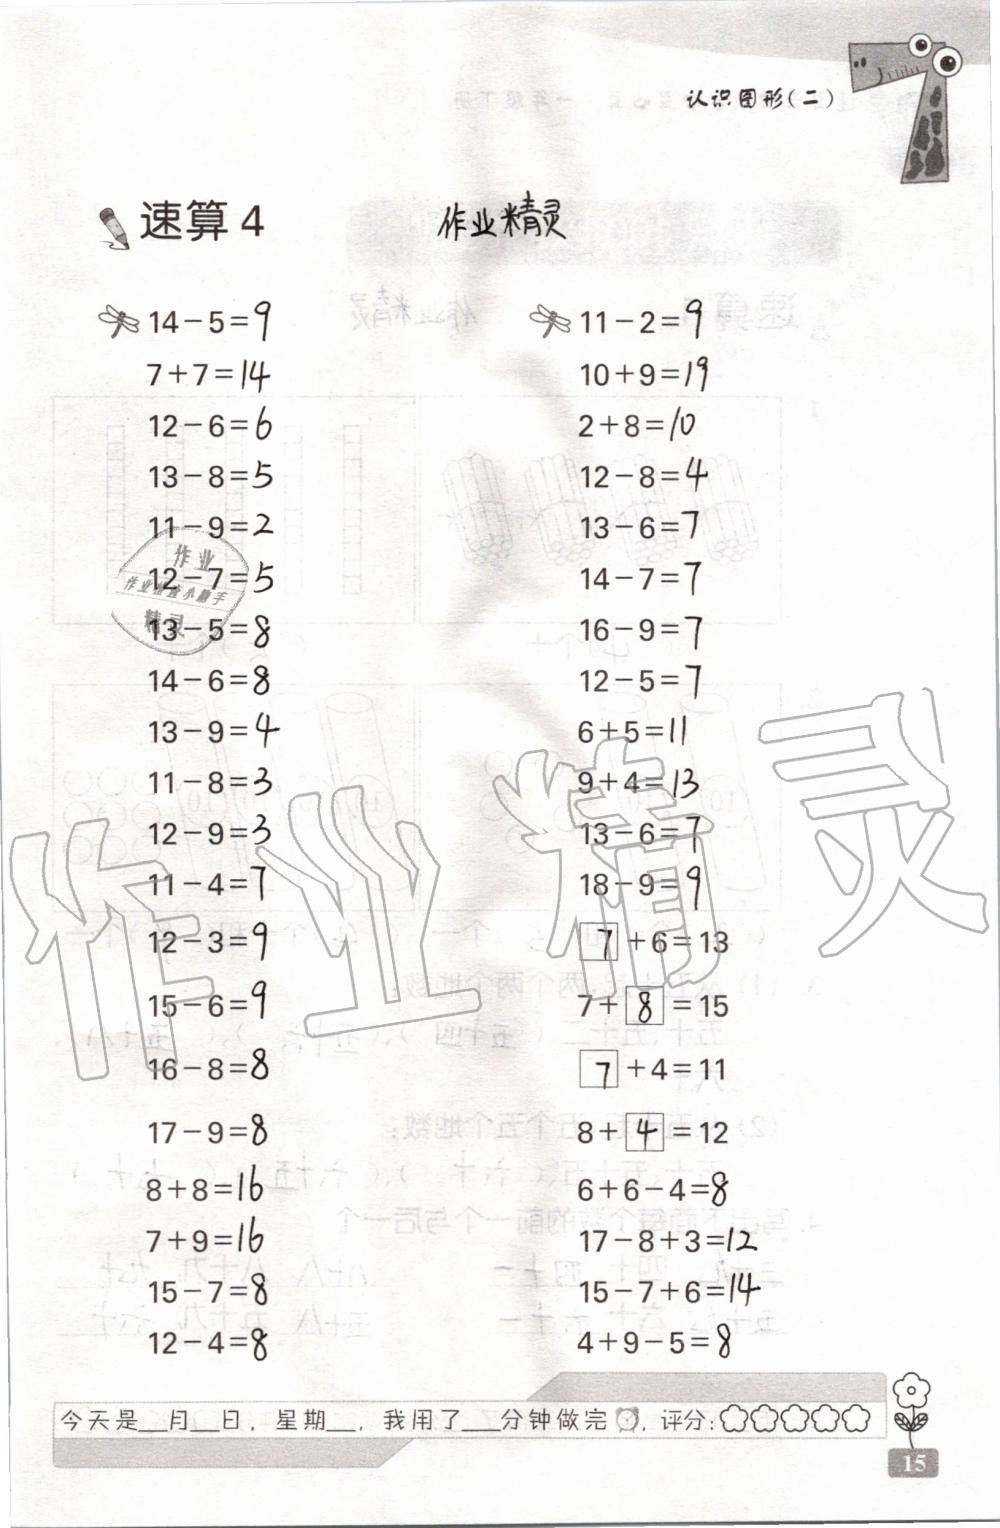 认识图形(二)
速算4
作业精灵
14-5=9
7+7=14
12-6=6
13-8=5
11-9=2
12-7=5
13-5=8
14-6=8
13-9=4
11-8=3
12-9=3
11-4=7
12-3=9
15-6=9
16-8=8
17-9=8
8+8=16
7+9=16
15-7=8
12-4=8
11-2=9
10+9=19
2+8=10
12-8=4
13-6=7
14-7=7
16-9=7
12-5=7
6+5=11
9+4=13
13-6=7
18-9=9
7+6=13
7+8=15
7+4=11
8+4=12
6+6-4=8
17-8+3=12
15-7+6=14
4+9-5=8
作业
作业检查小助手
精灵
作业精灵
今天是__月__日，星期__，我用了__分钟做完，评分:
15